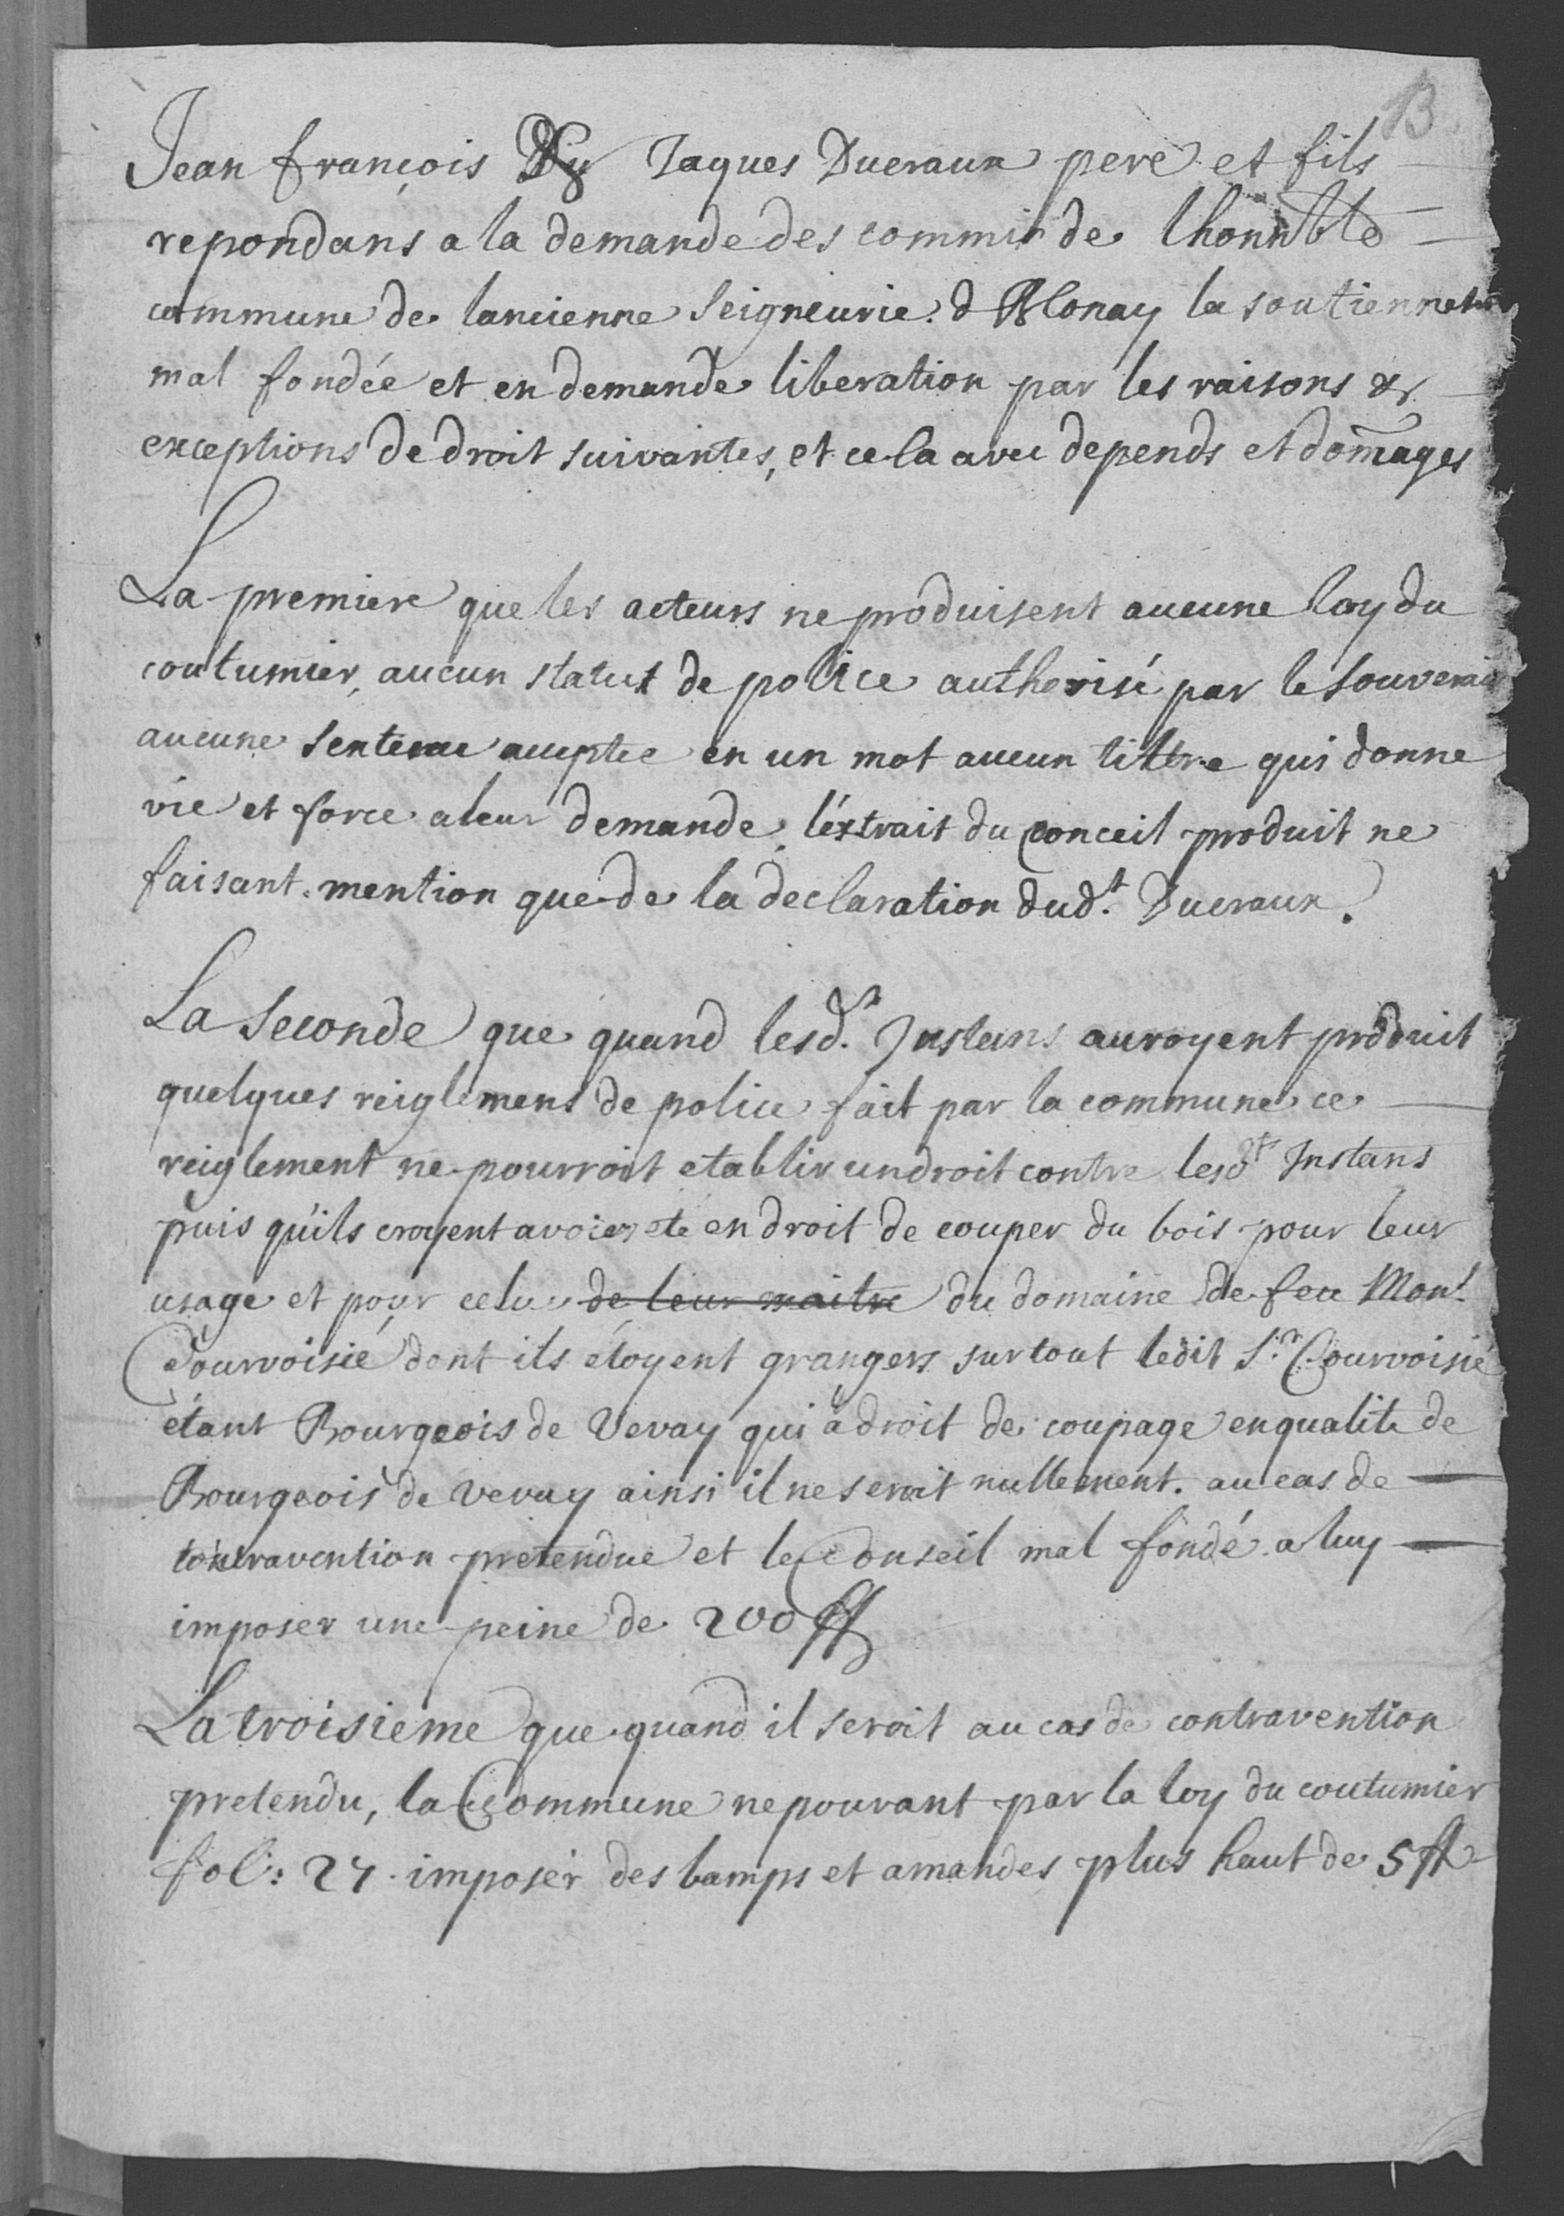 13
Jean françois & Jaques Ducraux pere et fils
repondans a la demande des commis de lhonnble
commune de lancienne seigneurie d Blonay la soutiennent
mal fondée et en demande liberation par les raisons &
exceptions de droit suivantes, et cela avec depends et dom̃ages
La premiere que les acteurs ne produisent aucune loy du
coutumier, aucun statut de police authorisé par le souverain
aucune sentence acceptée en un mot aucun tiltre qui donne
vie et force a leur demande, léxtrait du Conceil produit ne
faisant mention que de la declaration dud.t Ducraux.
La seconde que quand lesd.s Instans auroyent produit
quelques reiglemens de police fait par la commune ce
reiglement ne pourroit etablir un droit contre lesd.ts Instans
puis qu'ils croyent avoir eté en droit de couper du bois pour leur
usage et pour celuy de leur maitre du domaine de feu Mons.r
Courvoisié dont ils étoyent grangers surtout ledit S.r Courvoisié
étant Bourgeois de Vevay qui a droit de coupage en qualité de
Bourgeois de Vevay ainsi il ne seroit nullement au cas de
contravention pretendue et le Conseil mal fondé a luy
imposer une peine de 200 ff
La troisieme que quand il seroit au cas de contravention
pretendu, la Commune ne pouvant par la loy du coutumier
fol: 27 imposer des bamps et amandes plus haut de 5 ff